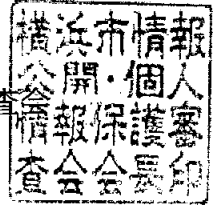 横浜市情報
公開・個人
情報保護審
査会会長印